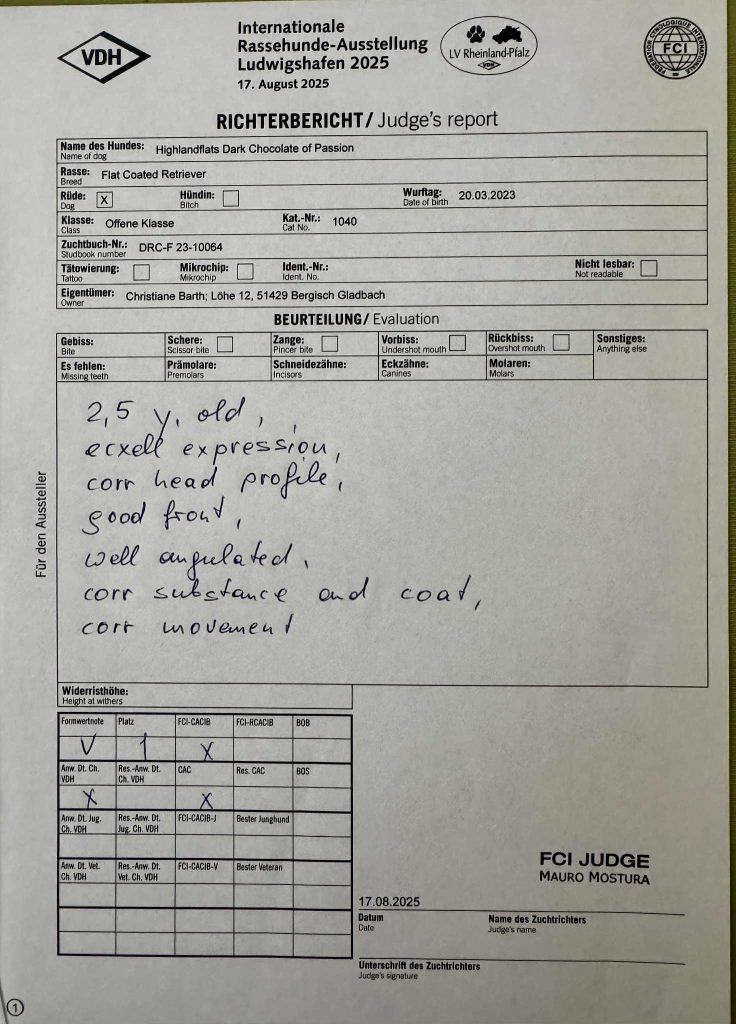 VDH
Internationale
Rassehunde-Ausstellung
Ludwigshafen 2025
17. August 2025
LV Rheinland-Pfalz
VDH
FEDERATION CYNOLOGIQUE INTERNATIONALE
FCI
RICHTERBERICHT/ Judge's report
Name des Hundes: Highlandflats Dark Chocolate of Passion
Name of dog
Rasse: Flat Coated Retriever
Breed
Rüde: X Hündin: Wurftag: 20.03.2023
Dog Bitch Date of birth
Klasse: Offene Klasse Kat.-Nr.: 1040
Class Cat No.
Zuchtbuch-Nr.: DRC-F 23-10064
Studbook number
Tätowierung: Mikrochip: Ident.-Nr.: Nicht lesbar:
Tattoo Mikrochip Ident. No. Not readable
Eigentümer: Christiane Barth; Löhe 12, 51429 Bergisch Gladbach
Owner
BEURTEILUNG/ Evaluation
Gebiss: Schere: Zange: Vorbiss: Rückbiss: Sonstiges:
Bite Scissor bite Pincer bite Undershot mouth Overshot mouth Anything else
Es fehlen: Prämolare: Schneidezähne: Eckzähne: Molaren:
Missing teeth Premolars Incisors Canines Molars
Für den Aussteller
2,5 y, old,
ecxell expression,
corr head profile,
good front,
well angulated,
corr substance and coat,
corr movement
Widerristhöhe:
Height at withers
Formwertnote Platz FCI-CACIB FCI-RCACIB BOB
V 1 X
Anw. Dt. Ch. Res.-Anw. Dt. CAC Res. CAC BOS
VDH Ch. VDH
X X
Anw. Dt. Jug. Res.-Anw. Dt. FCI-CACIB-J Bester Junghund
Ch. VDH Jug. Ch. VDH
Anw. Dt. Vet. Res.-Anw. Dt. FCI-CACIB-V Bester Veteran
Ch. VDH Vet. Ch. VDH
FCI JUDGE
MAURO MOSTURA
17.08.2025
Datum Name des Zuchtrichters
Date Judge's name
Unterschrift des Zuchtrichters
Judge's signature
1